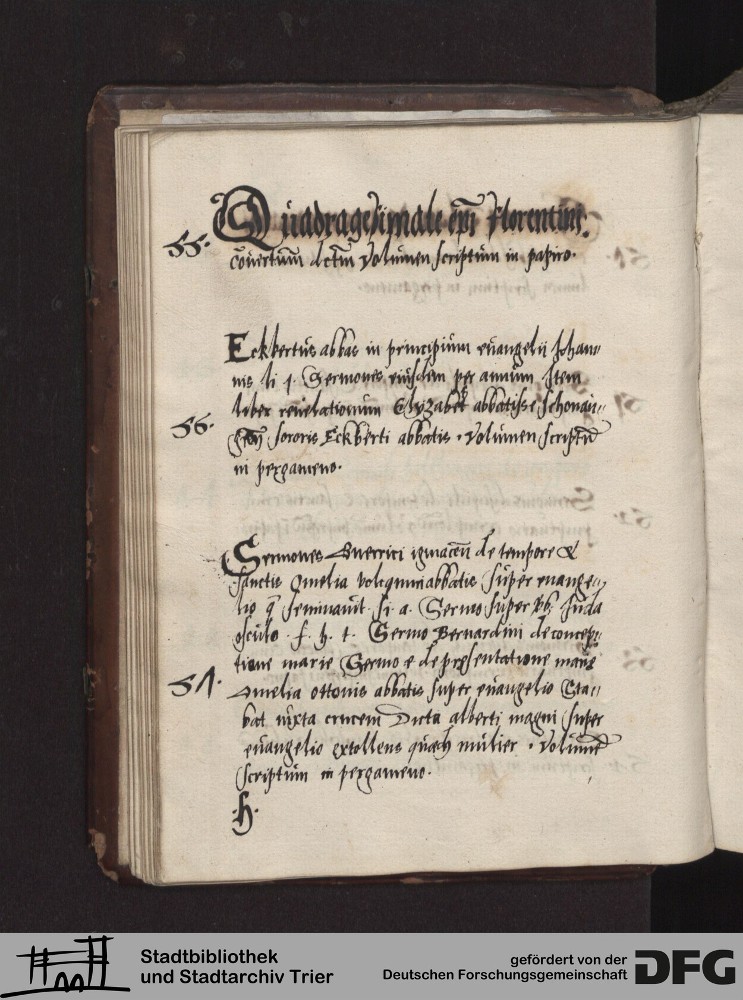 Quadragesimale epi Florentini.
55.
Couertum dctm Volumen scriptum in papiro.
Eckbertus abbas in principium euangelii Johan„
nis li 1. Sermones eiusdem per annum Item
liber reuelationum Elyzabet abbatisse Schonau„
56.
sororis Eckberti abbatis. Volumen scriptu
in pergameno.
Sermones Guerrici igniacen de tempore &
sanctis Omelia abbatis super euange„
lio q seminauit. si. a. Sermo super Juda
osculo. f. h. t. Sermo Bernardini de concep„
tione marie Sermo e de presentatione marie
57.
Omelia ottonis abbatis super euangelio Sta„
bat iuxta crucem Dicta alberti magni super
euangelio extollens mulier. Volume
scriptum in pergameno.
h.
Stadtbibliothek
und Stadtarchiv Trier
gefördert von der
Deutschen Forschungsgemeinschaft
DFG